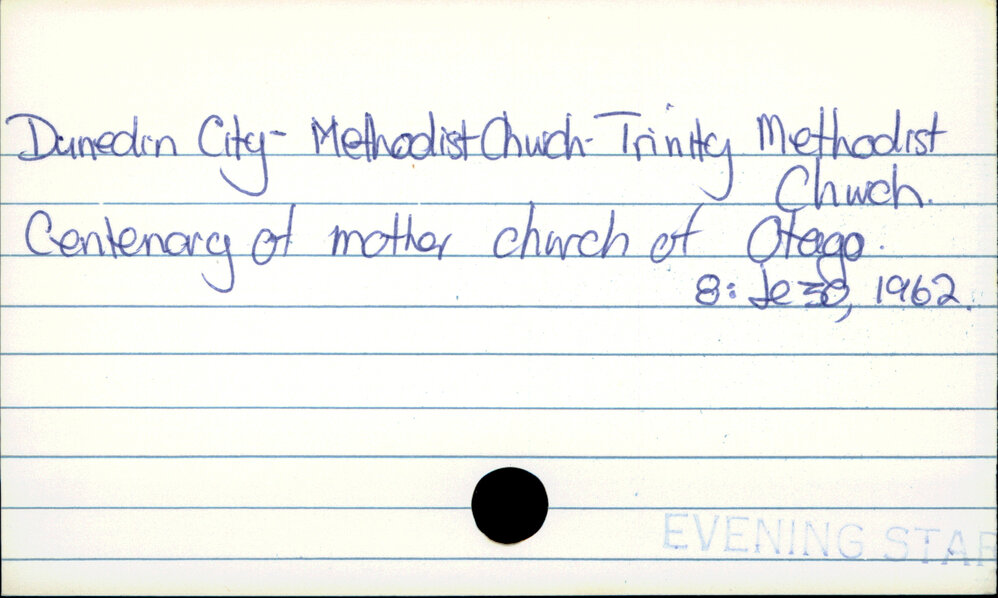 Dunedin City - Methodist Church - Trinity Methodist
Church.
Centenary of mother church of Otago.
8: Je 30, 1962.
EVENING STAR